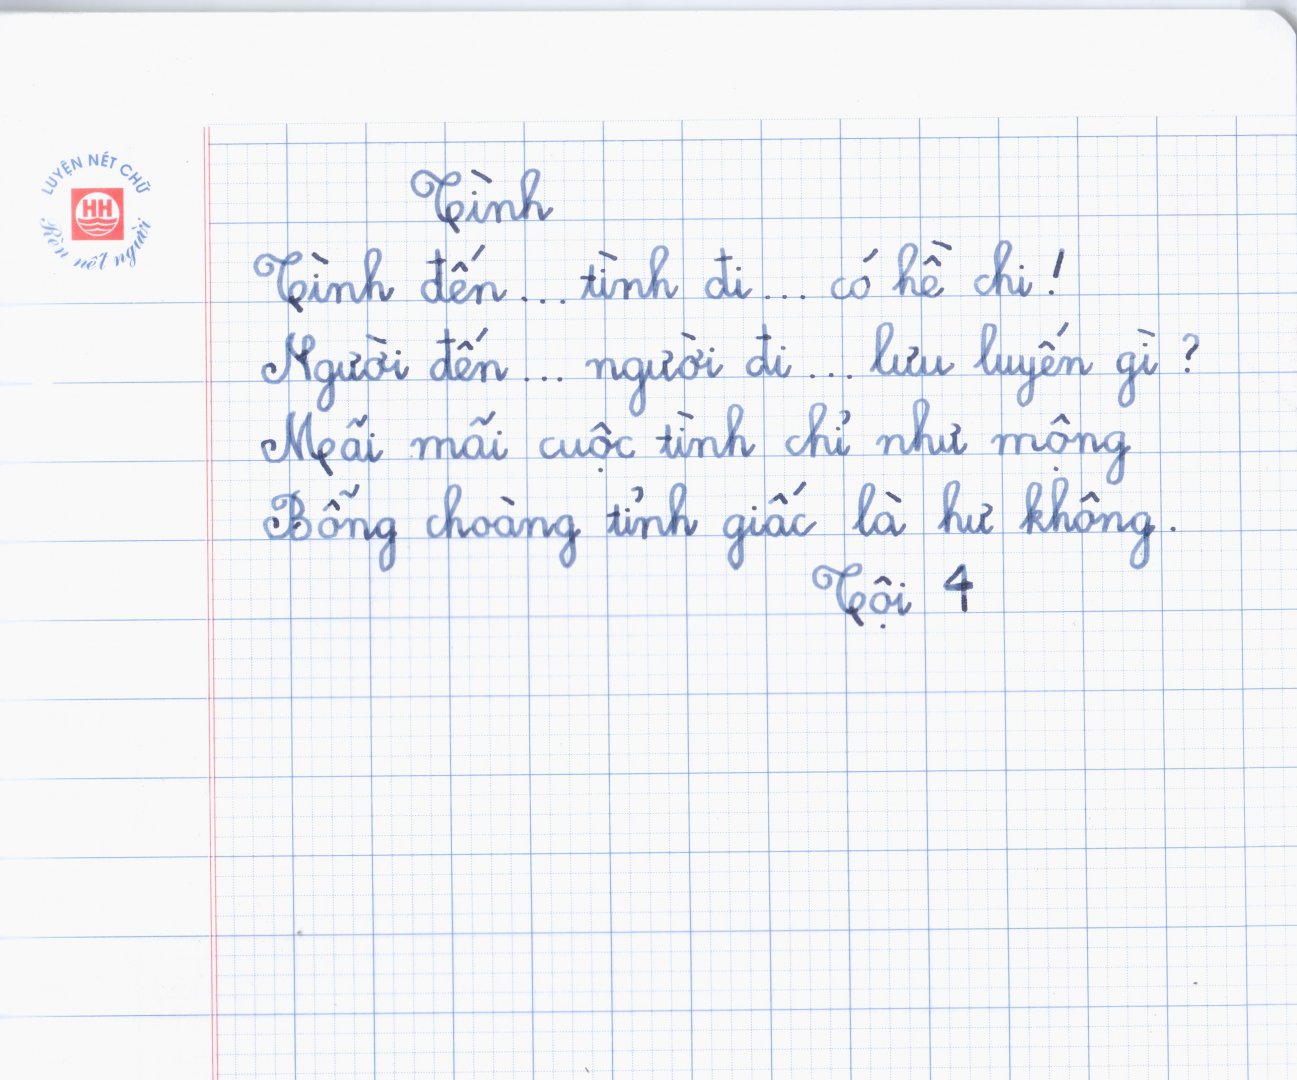 LUYỆN NÉT CHỮ
HH
Rèn nết người
Tình
Tình đến... tình đi... có hề chi!
Người đến... người đi... lưu luyến gì?
Mãi mãi cuộc tình chỉ như mộng
Bỗng choàng tỉnh giấc là hư không.
Tội 4